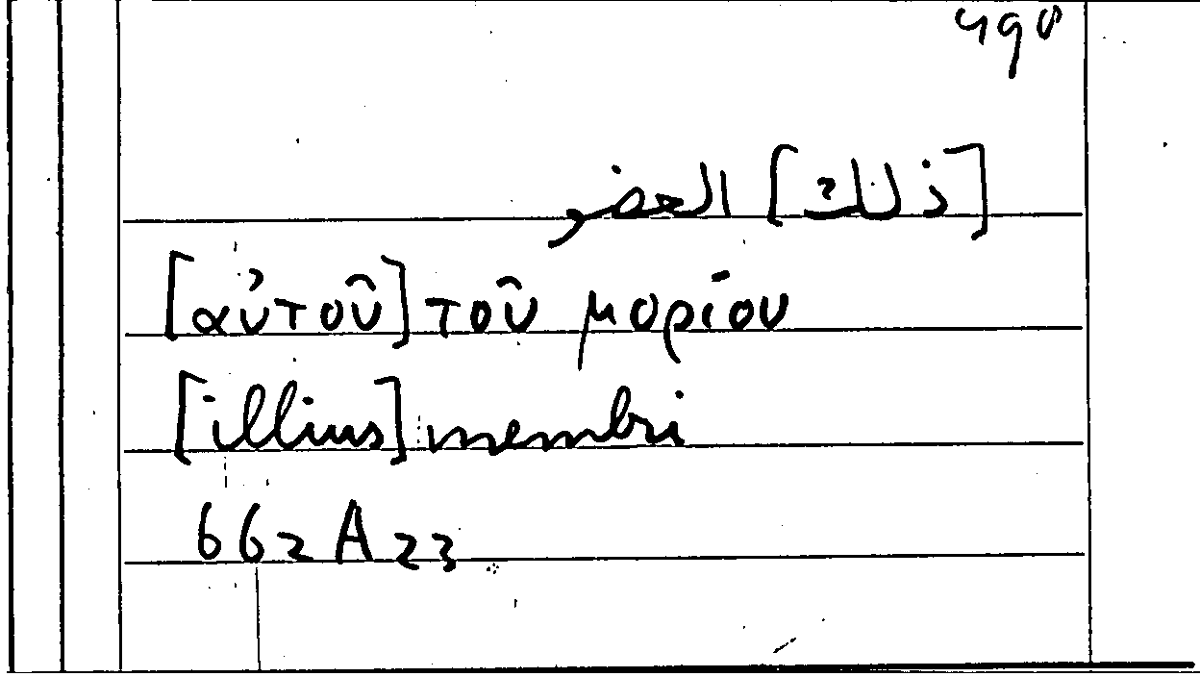 490
[ذلك] العضو
[αὐτοῦ] τοῦ μορίου
[illius] membri
662 A 23